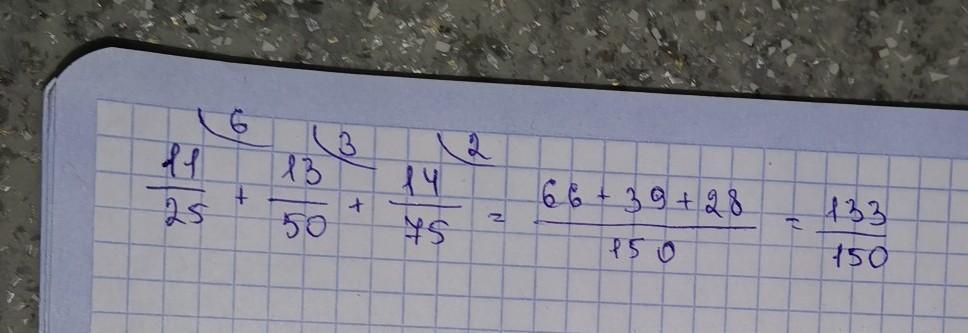 6 3 2
11/25 + 13/50 + 14/75 = 66 + 39 + 28/150 = 133/150